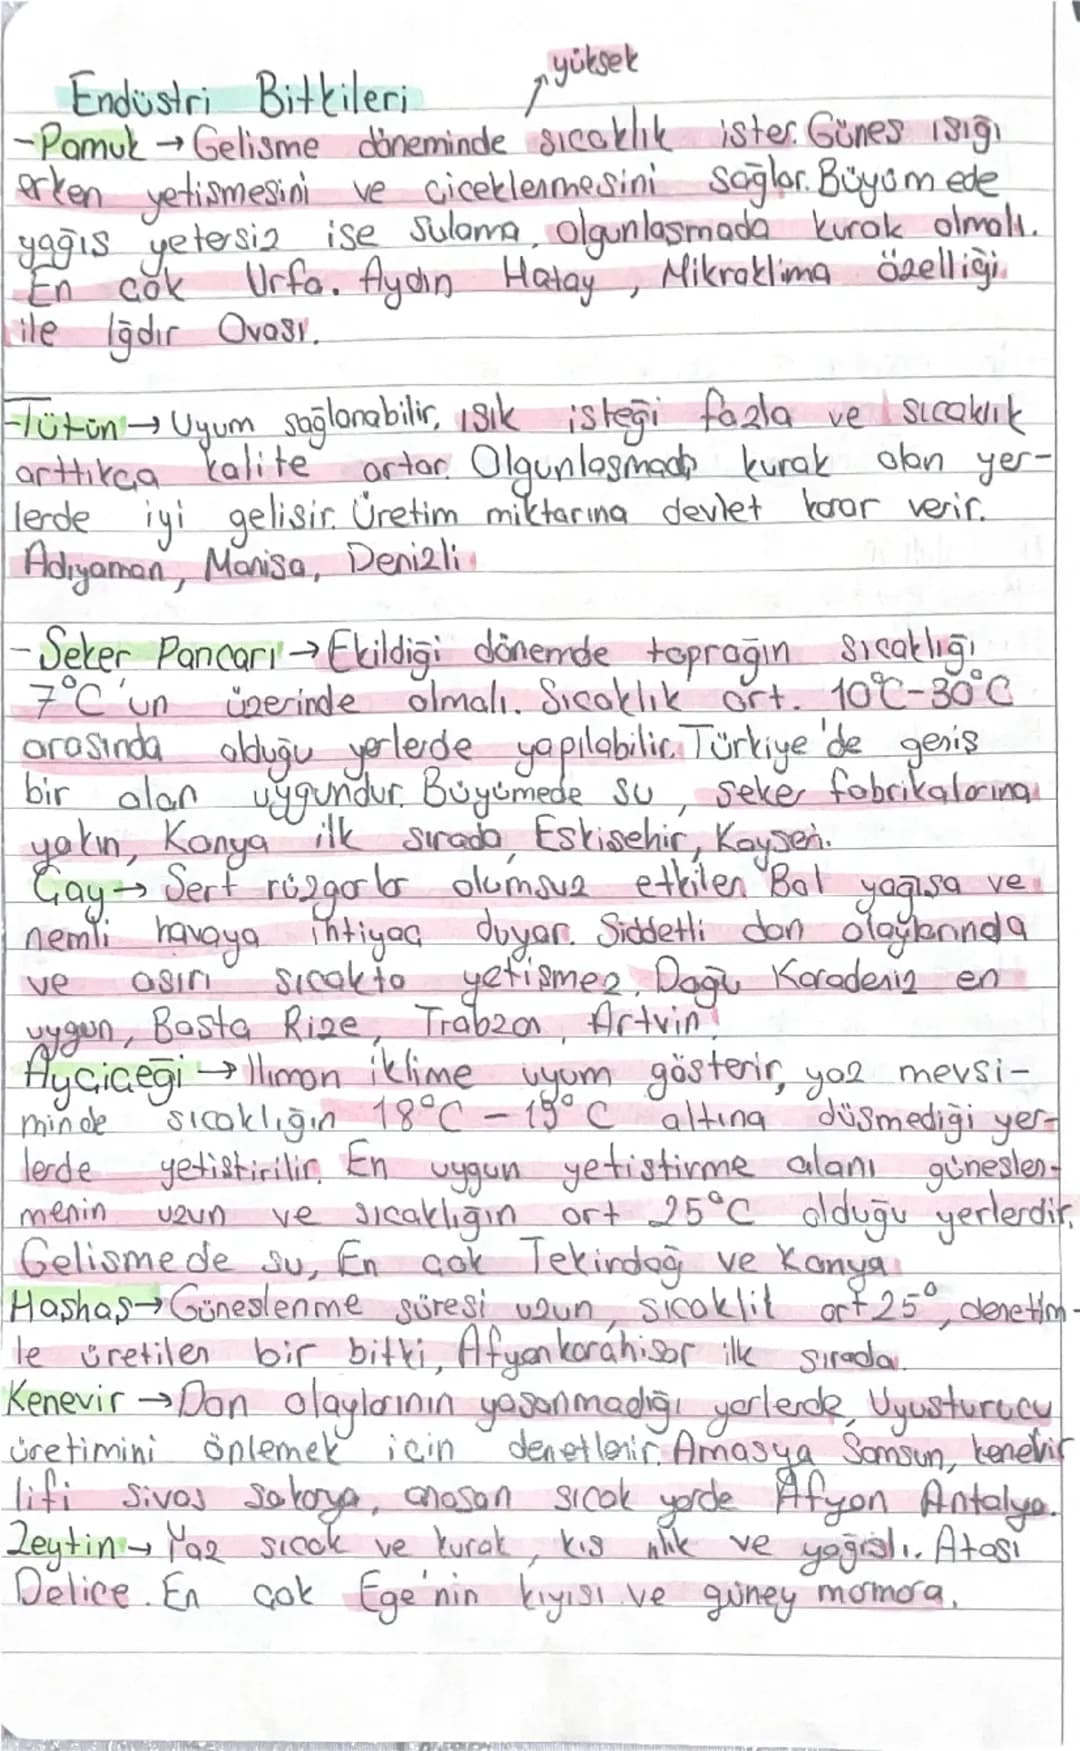 yüksek
Endüstri Bitkileri
-Pamuk → Gelisme döneminde sıcaklık ister. Günes ısığı
erken yetismesini ve ciceklenmesini sağlar. Büyümede
yağıs yetersiz ise sulama, olgunlasmada kurak olmalı.
En cok Urfa. Aydın Hatay, Mikroklima özelliği
ile Iğdır Ovası.
-Tütün → Uyum sağlanabilir, ısık isteği fazla ve sıcaklık
arttıkca kalite artar. Olgunlasmada kurak olan yer-
lerde iyi gelisir. Üretim miktarına devlet karar verir.
Adıyaman, Manisa, Denizli
-Seker Pancarı → Ekildiği dönemde toprağın sıcaklığı
7°C'un üzerinde olmalı. Sıcaklık ort. 10°C-30°C
arasında olduğu yerlerde yapılabilir. Türkiye'de genis
bir alan uygundur. Büyümede su, seker fabrikalarına
yakın, Konya ilk sırada, Eskisehir, Kayseri.
Cay → Sert rüzgarlar olumsuz etkiler. Bol yağısa ve
nemli havaya ihtiyac duyar. Siddetli don olaylarında
ve asırı sıcakta yetismez. Dogu Karadeniz en
uygun, Basta Rize, Trabzon, Artvin
Aycicegi → Ilıman iklime uyum gösterir, yaz mevsi-
minde sıcaklığın 18°C - 19°C altına düsmediği yer-
lerde yetistirilir. En uygun yetistirme alanı güneslen-
menin uzun ve sıcaklığın ort 25°C olduğu yerlerdir.
Gelismede su, En cok Tekirdağ ve Konya
Hashas → Güneslenme süresi uzun, sıcaklık ort 25°, denetim-
le üretilen bir bitki, Afyonkarahisar ilk sırada.
Kenevir → Don olaylarının yasanmadığı yerlerde, Uyusturucu
üretimini önlemek icin denetlenir. Amasya Samsun, kenevir
lifi Sivas Sakarya, anason sıcak yerde Afyon Antalya.
Zeytin → Yaz sıcak ve kurak, kıs ılık ve yağıslı. Atası
Delice. En çok Ege'nin kıyısı ve güney marmara.